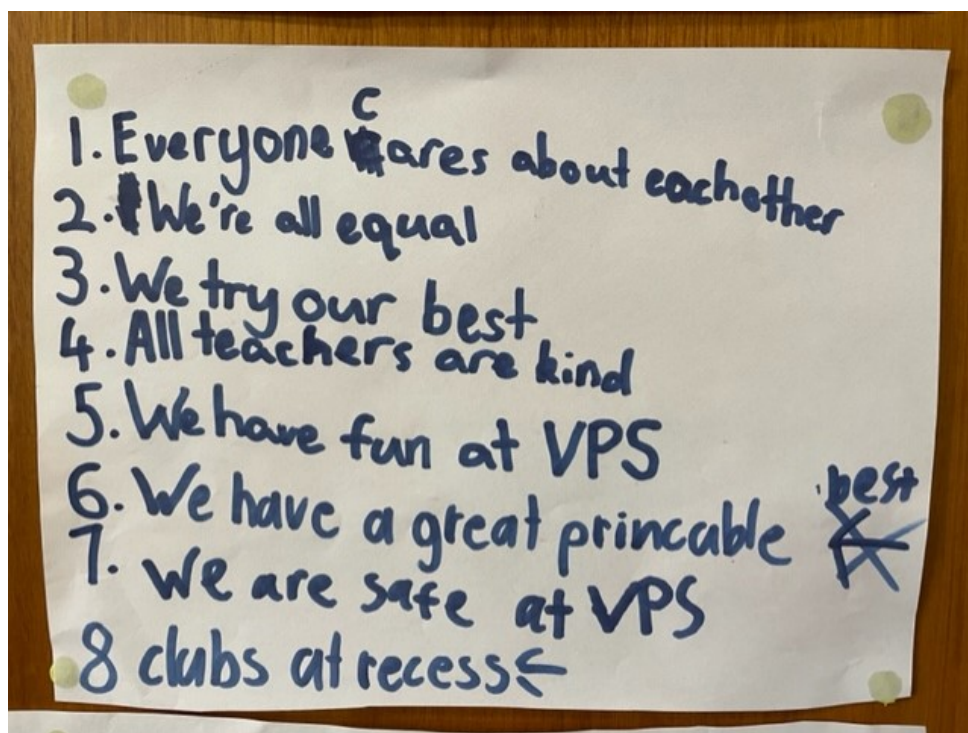 1. Everyone cares about eachother
2. We're all equal
3. We try our best
4. All teachers are kind
5. We have fun at VPS
6. We have a great princable best
7. We are safe at VPS
8 clubs at recess